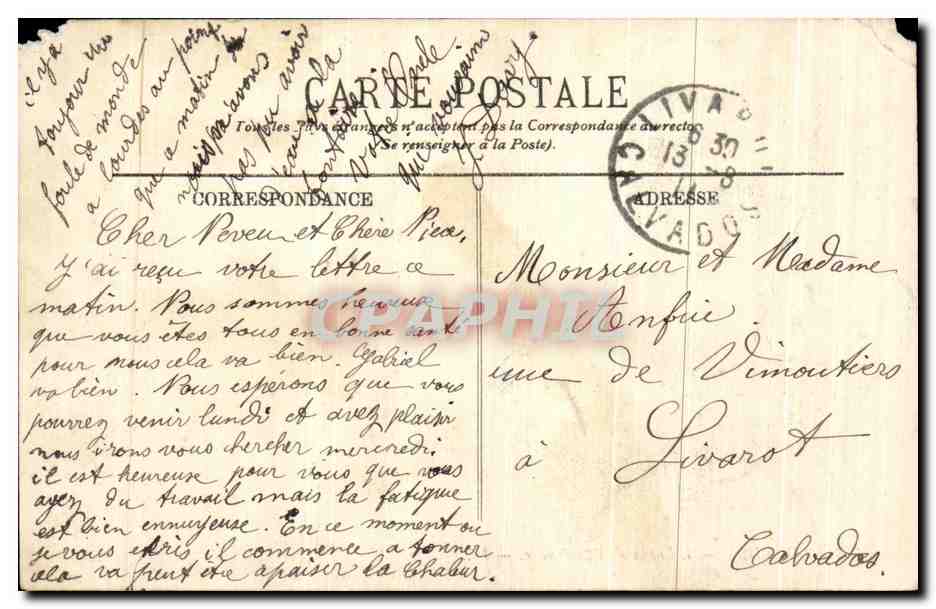 CARTE POSTALE
Tous les Pays étrangers n'acceptent pas la Correspondance au recto
(Se renseigner à la Poste).
CORRESPONDANCE
ADRESSE
LIVAROT
6 30
13 - 8
CALVADOS
Cher Neveu et Chère Nièce,
J'ai reçu votre lettre ce
matin. Nous sommes heureuse
que vous êtes tous en bonne santé
pour nous cela va bien. Gabriel
va bien. Nous espérons que vous
pourrez venir lundi et avez plaisir
nous irons vous chercher mercredi.
il est heureuse pour vous que vous
ayez du travail mais la fatigue
est bien ennuyeuse. En ce moment ou
je vous écris il commence a tonner
cela va peut etre apaiser la Chaleur.
il y a
toujour une
foule de monde
a Lourdes au point
que a matin
nous n'avons
pas pu avoir
d'eau a la
fontaine
votre
qui vous aim
Monsieur et Madame
Anfrie
rue de Vimoutiers
à Livarot
Calvados.
CPAPHIL